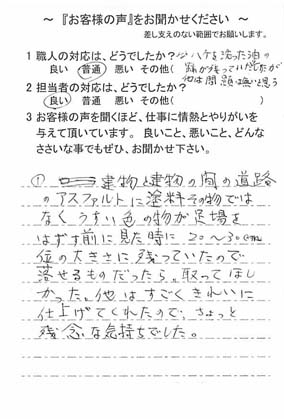 ～『お客様の声』をお聞かせください ～
差し支えのない範囲でお願いします。
1 職人の対応は、どうでしたか？ ハケを洗った油の
良い 普通 悪い その他( 跡が残っていましたが
他は問題は無いと思う
2 担当者の対応は、どうでしたか？
良い 普通 悪い その他( )
3 お客様の声を聞くほど、仕事に情熱とやりがいを
与えて頂いています。 良いこと、悪いこと、どんな
ささいな事でもぜひ、お聞かせ下さい。
① 建物と建物の間の道路
のアスファルトに塗料その物では
なくうすい色の物が足場を
はずす前に見た時に20～30cm
位の大きさに残っていたので
落せるものだったら。取ってほし
かった。他はすごくきれいに
仕上げてくれたので、ちょっと
残念な気持ちでした。